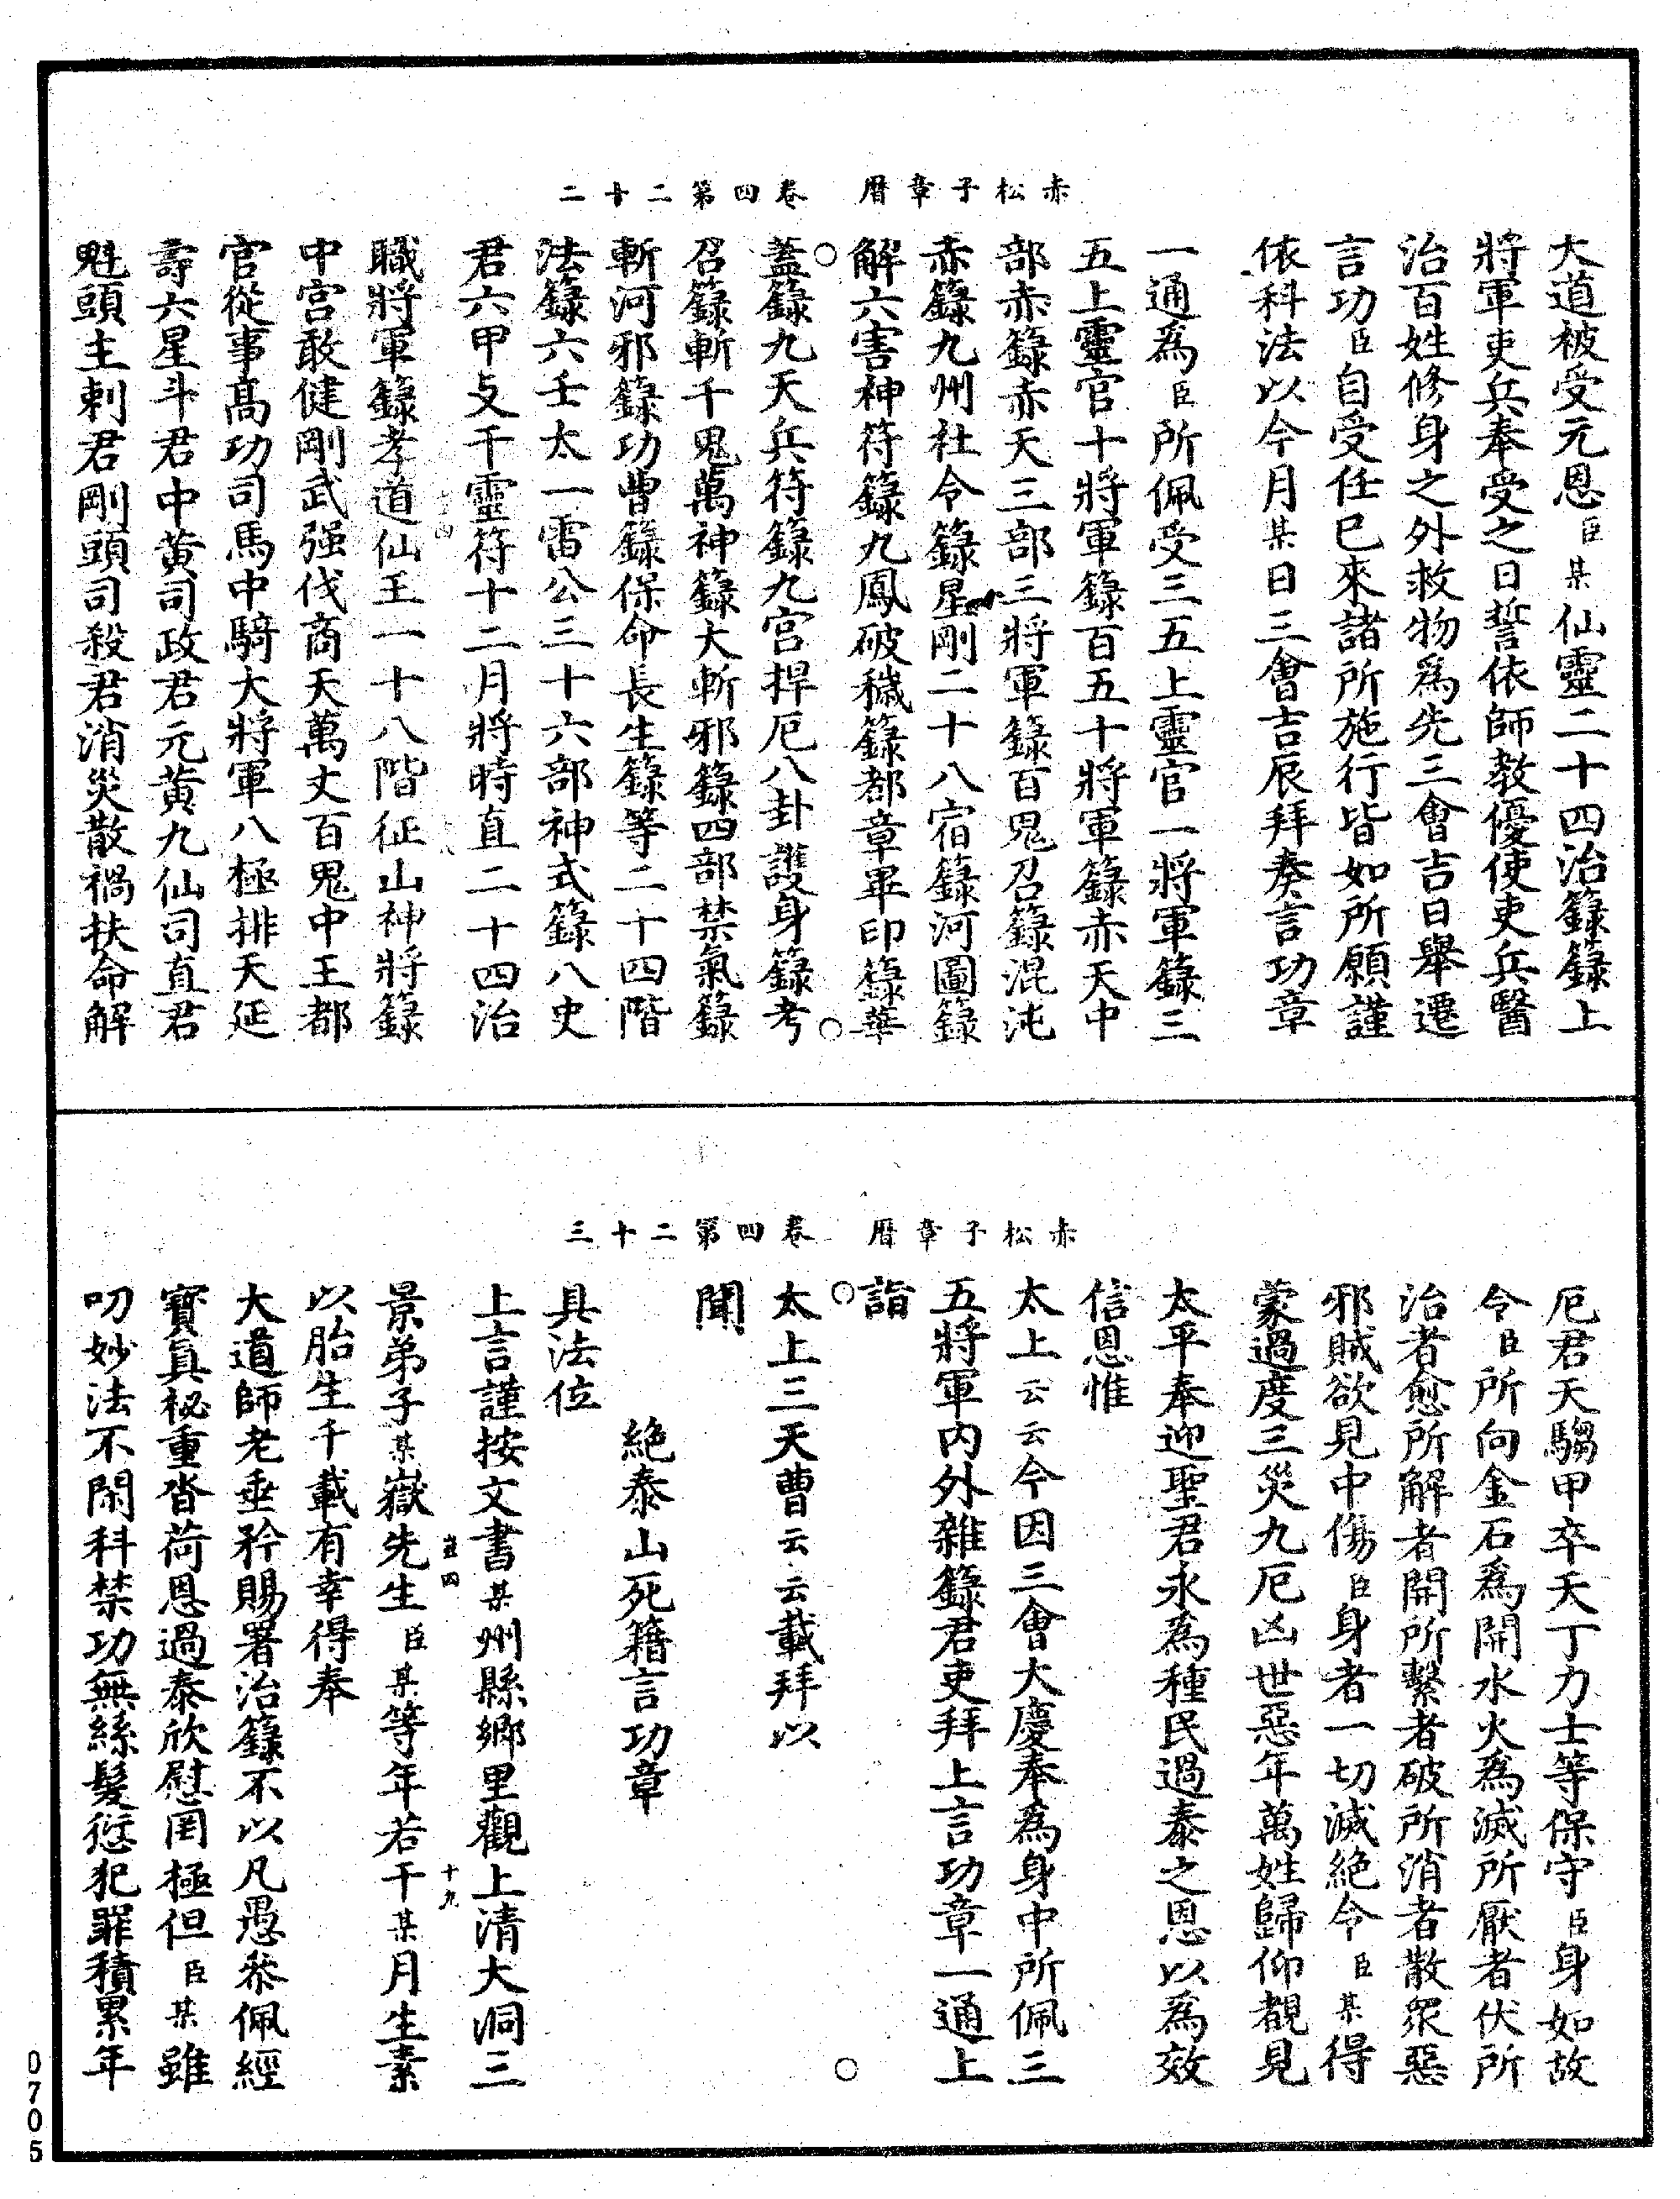 赤松子章曆　卷四第二十二
大道被受元恩臣某仙靈二十四治籙籙上
將軍吏兵奉受之日誓依師教優使吏兵醫
治百姓修身之外救物爲先三會吉日舉遷
言功臣自受任已來諸所施行皆如所願謹
依科法以今月某日三會吉辰拜奏言功章
一通爲臣所佩受三五上靈官一將軍籙三
五上靈官十將軍籙百五十將軍籙赤天中
部赤籙赤天三部三將軍籙百鬼召籙混沌
赤籙九州社令籙星剛二十八宿籙河圖籙
解六害神符籙九鳳破穢籙都章畢印籙華
蓋籙九天兵符籙九宮捍厄八卦護身籙考
召籙斬千鬼萬神籙大斬邪籙四部禁氣籙
斬河邪籙功曹籙保命長生籙等二十四階
法籙六壬太一雷公三十六部神式籙八史
君六甲父千靈符十二月將時直二十四治
職將軍籙孝道仙王一十八階征山神將籙
中宮敢健剛武强伐商天萬丈百鬼中王都
官從事高功司馬中騎大將軍八極排天延
壽六星斗君中黄司政君元黄九仙司直君
魁頭主刺君剛頭司殺君消災散禍扶命解
赤松子章曆　卷四第二十三
厄君天騶甲卒天丁力士等保守臣身如故
令臣所向金石爲開水火爲滅所厭者伏所
治者愈所解者開所繫者破所消者散衆惡
邪賊欲見中傷臣身者一切滅絶令臣某得
蒙過度三災九厄凶世惡年萬姓歸仰覩見
太平奉迎聖君永爲種民過泰之恩以爲效
信恩惟
太上云云今因三會大慶奉爲身中所佩三
五將軍內外雜籙君吏拜上言功章一通上
詣
太上三天曹云云載拜以
聞
絶泰山死籍言功章
具法位
上言謹按文書某州縣鄉里觀上清大洞三
景弟子某嶽先生臣某等年若干某月生素
以胎生千載有幸得奉
大道師老垂矜賜署治籙不以凡愚叅佩經
寶眞祕重沓荷恩過泰欣慰罔極但臣某雖
叨妙法不閑科禁功無絲髮愆犯罪積累年
十九
0705